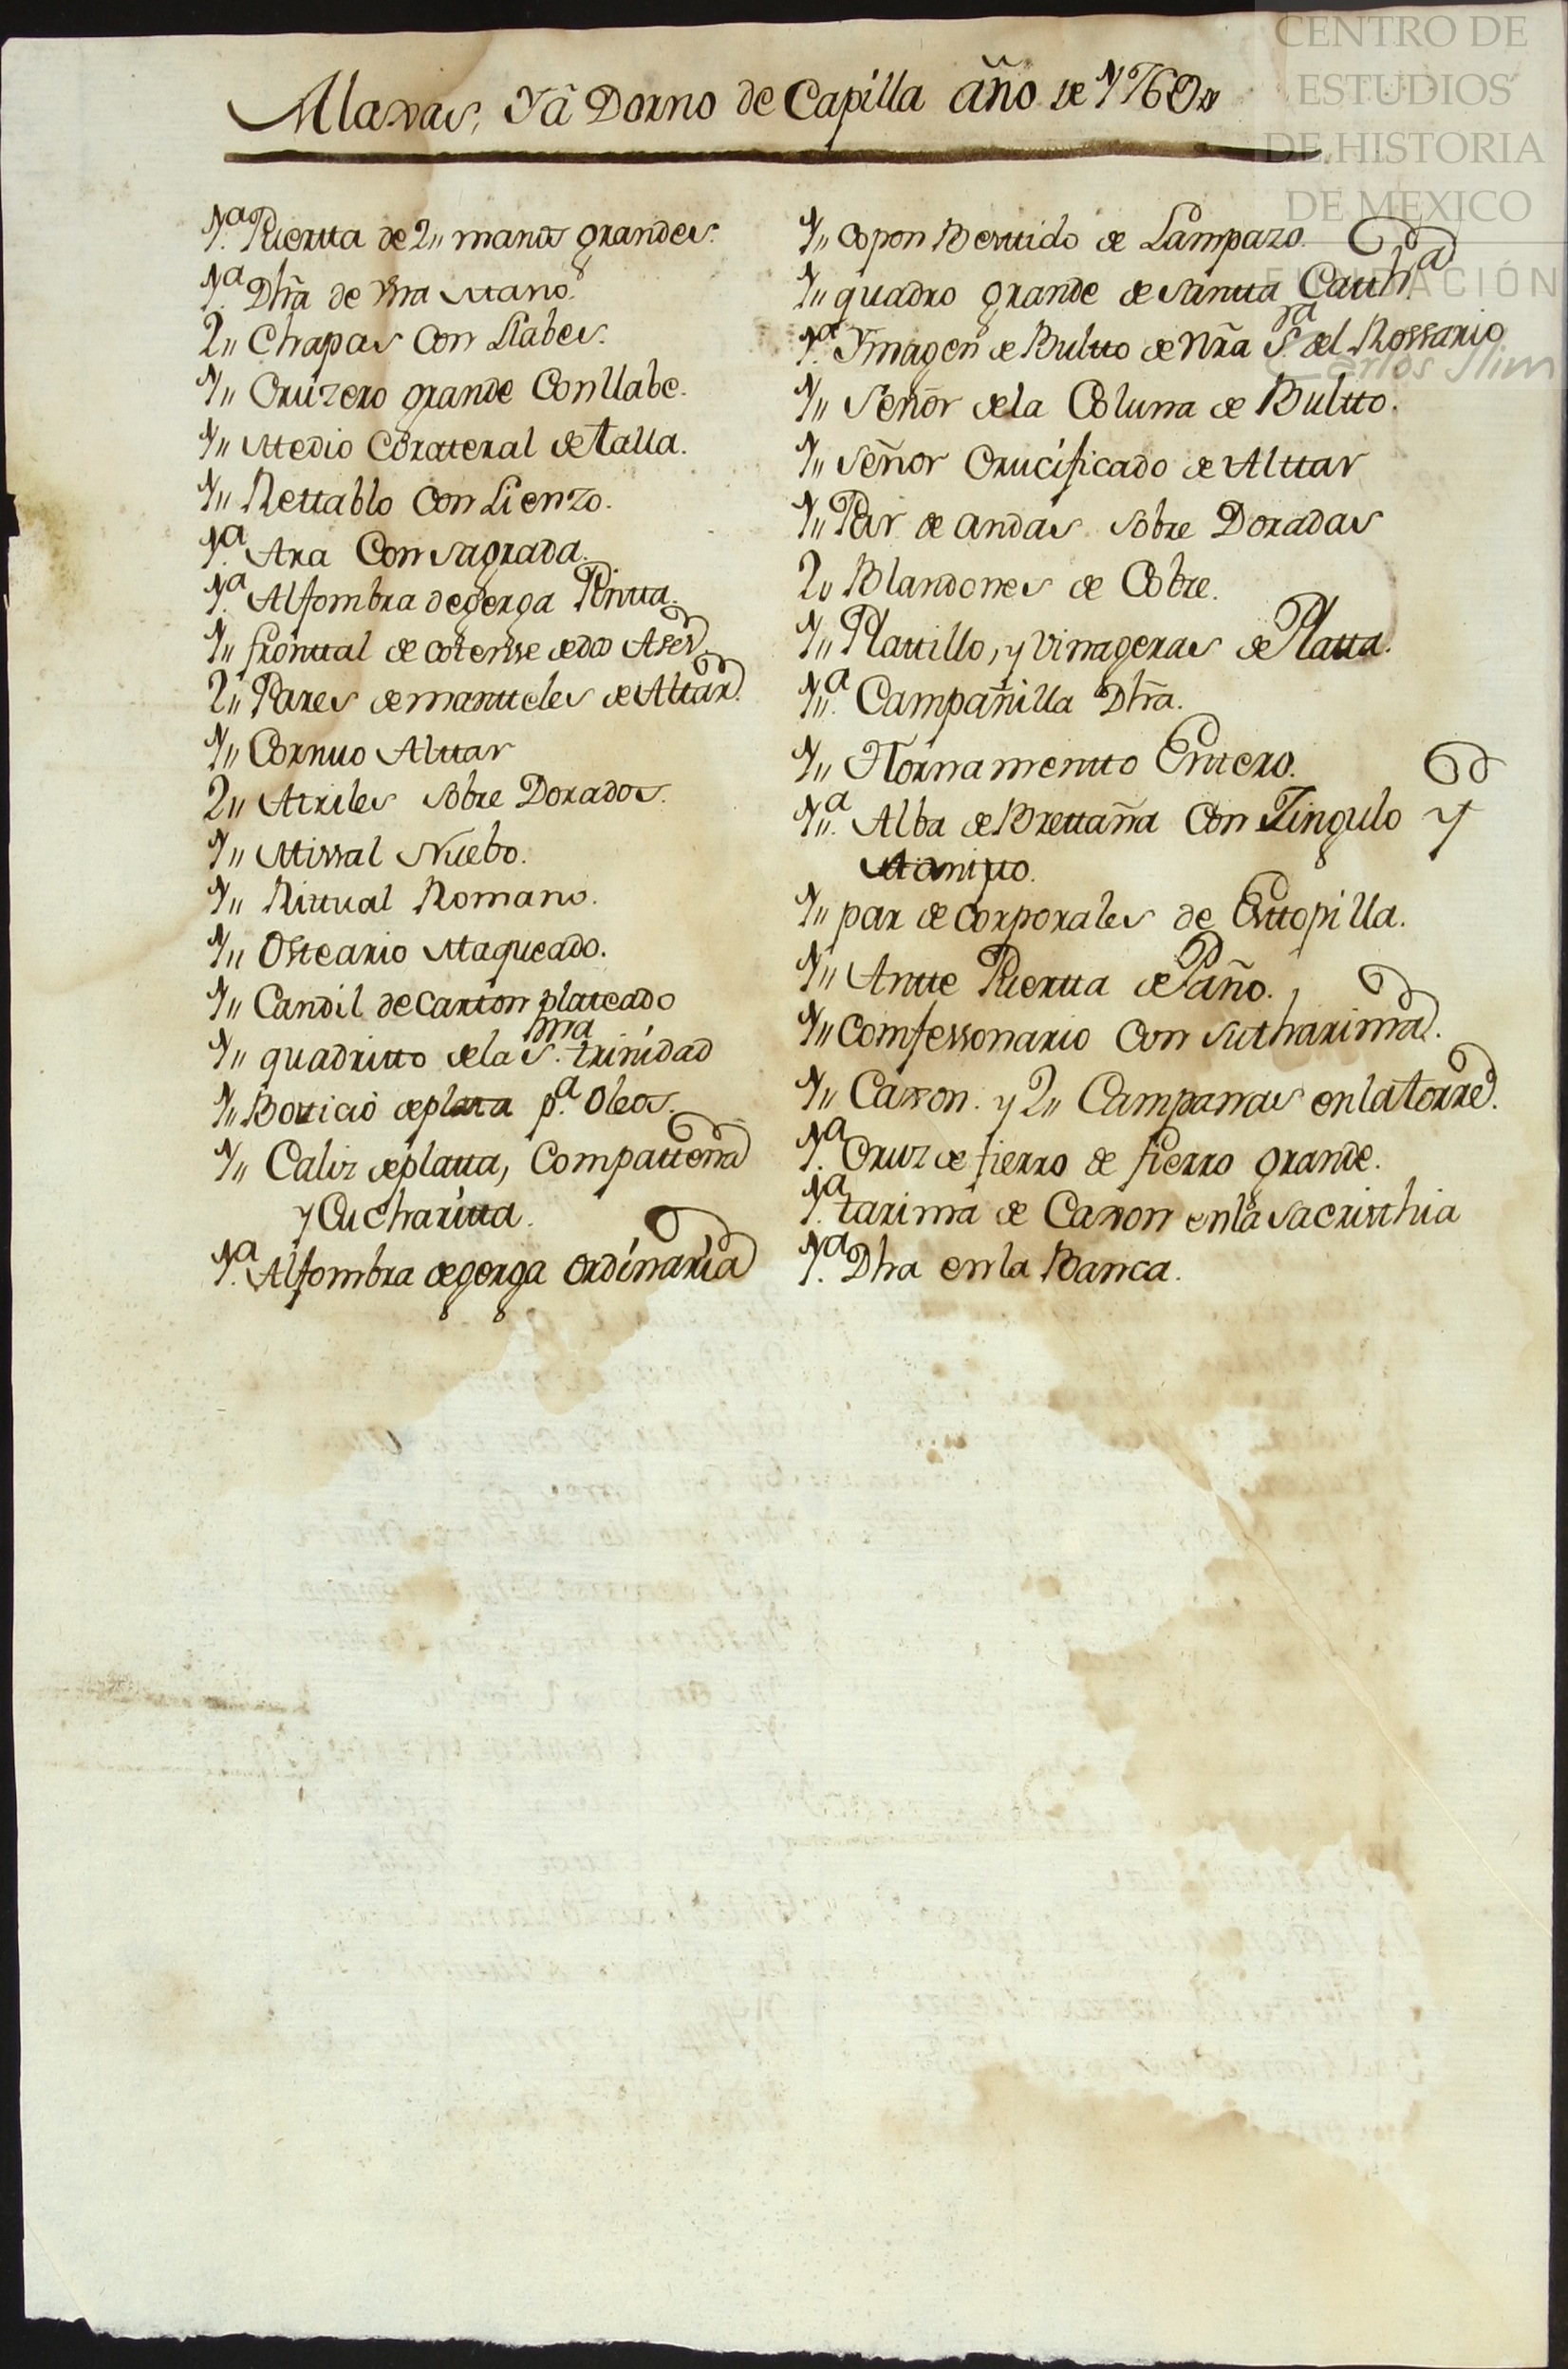 Alaxas, Yâ Dorno de Capilla año de 1760
1.ª Puertta de 2,, manos grandes.
1.ª Dhã de Una Mano.
2,, Chapas Con Llabes.
1,, Cruzero grande Conllabe.
1,, Medio Corateral de talla.
1,, Rettablo Con Lienzo.
1.ª Ara Consagrada.
1.ª Alfombra de gerga Pintta.
1,, fronttal de cotense
2,, Pares de mantteles de Alttar.
1,, Cornuo Alttar
2,, Atriles sobre Dorados.
1,, Missal Nuebo.
1,, Rittual Romano.
1,, Osteario Maqueado.
1,, Candil de Carton plateado
1,, quadritto dela S.ma trinidad
1,, de plata p.ª Oleos.
1,, Caliz de platta, Compattena
y Cucharitta.
1.ª Alfombra de gerga ordinaria
1,, Copon Besttido de Lampazo.
1,, quadro grande de Santta Catth.ª
1.ª Ymagen de Bultto de Nrã S.ra del Rossario
1,, Señor dela Coluna de Bultto.
1,, Señor Crucificado de Alttar
1,, Par de andas sobre Doradas
2,, Blandones de Cobre.
1,, Plattillo, y Vinageras de Platta.
1,,ª Campañilla Dhã.
1,, Hornamentto Entero.
1,,ª Alba de Brettaña Con Zingulo y
Manipo.
1,, par de corporales de Esttopilla.
1,, Antte Puertta de Paño.
1,, Comfessonario Con Sutharima.
1,, Caxon. y 2,, Campanas enlatorre.
1.ª Cruz de fierro de fierro grande.
1.ª tarima de Caxon enla Sacristhia
1.ª Dha enla Banca.
CENTRO DE
ESTUDIOS
DE HISTORIA
DE MEXICO
FUNDACIÓN
Carlos Slim